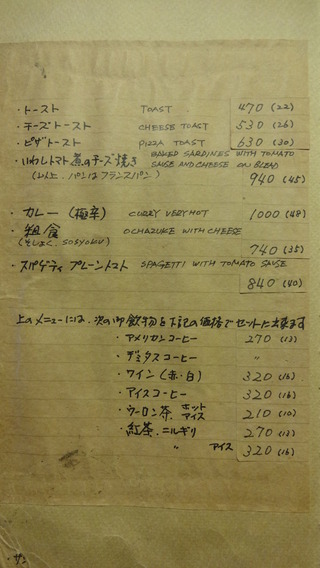 ・トースト TOAST 470 (22)
・チーズトースト CHEESE TOAST 530 (26)
・ピザトースト PIZZA TOAST 630 (30)
・いわしトマト煮のチーズ焼き BAKED SARDINES WITH TOMATO
SAUSE AND CHEESE ON BLEAD
(以上、パンはフランスパン) 940 (45)
・カレー (極辛) CURRY VERY HOT 1000 (48)
・粗食 OCHAZUKE WITH CHEESE
(そしょく、SOSYOKU) 740 (35)
・スパゲティ プレーントマト SPAGETTI WITH TOMATO SAUSE
840 (40)
上のメニューには、次の御飲物を下記の価格でセット出来ます
・アメリカンコーヒー 270 (13)
・デミタスコーヒー 〃
・ワイン (赤・白) 320 (16)
・アイスコーヒー 320 (16)
・ウーロン茶 ホット
アイス 210 (10)
・紅茶、ニルギリ 270 (13)
〃 アイス 320 (16)